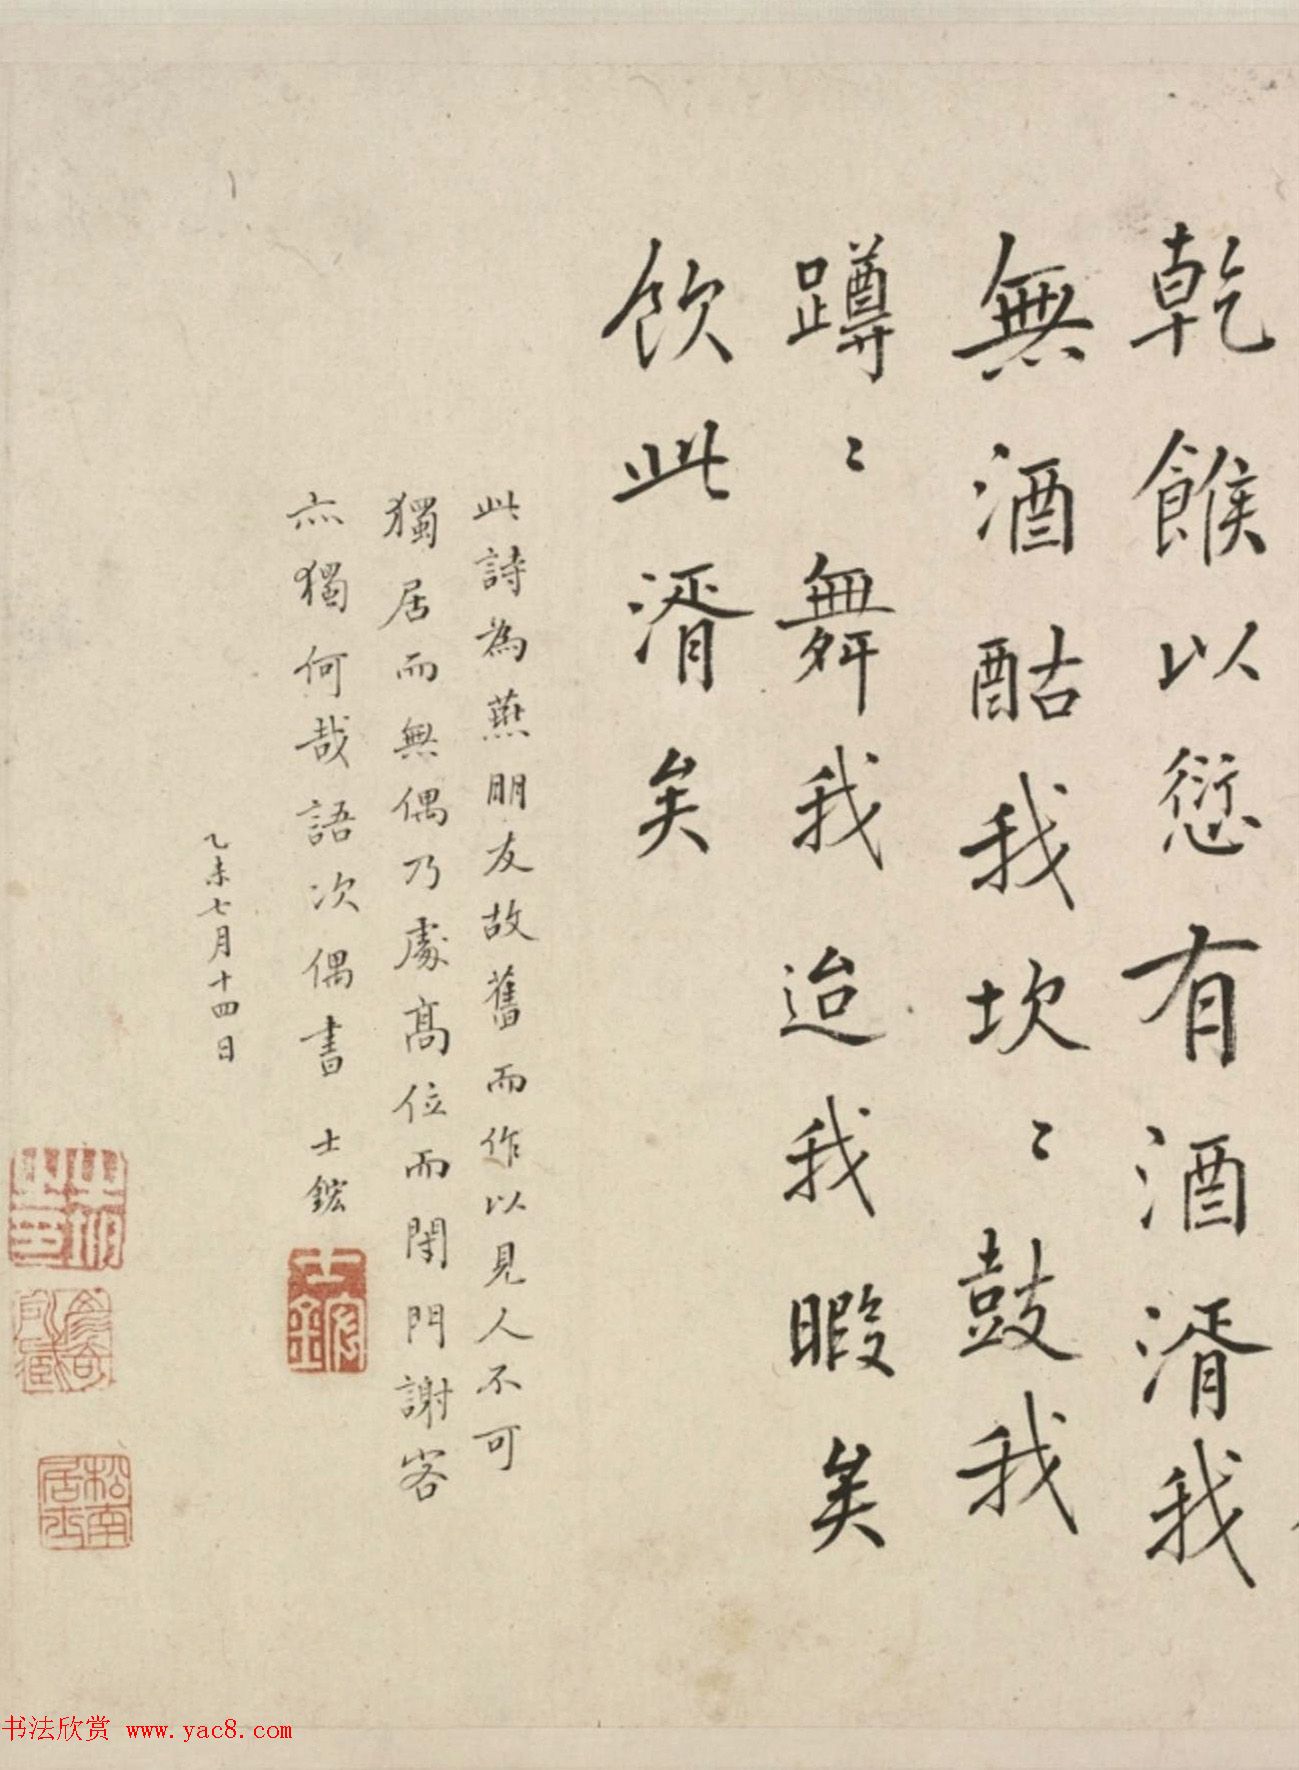 乾餱以愆有酒湑我
無酒酤我坎〻鼓我
蹲〻舞我迨我暇矣
飲此湑矣
此詩為燕朋友故舊而作以見人不可
獨居而無偶乃處高位而閉門謝客
亦獨何哉語次偶書 士鋐
乙未七月十四日
士鋐
松南居士
书法欣赏 www.yac8.com